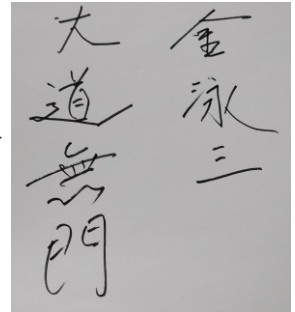 金泳三
大道無門